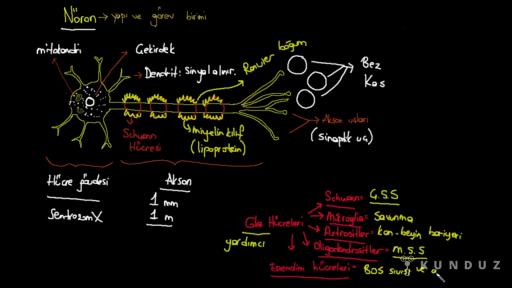 Nöron → yapı ve görev birimi
mitokondri
Çekirdek
Dendrit: Sinyal alınır.
Ranvier boğum
Bez
Kas
Schwann
Hücresi
Miyelin kılıf
(lipoprotein)
Akson uçları
(sinaptik uç)
Hücre gövdesi
Sentrozom X
Akson
1 mm
1 m
Glia Hücreleri
yardımcı
Schwann: Ç.S.S
Mikroglia = Savunma
Astrositler: kan-beyin bariyeri
Oligodendrositler → M.S.S
Ependim hücreleri = BOS sıvısı ve
KUNDUZ